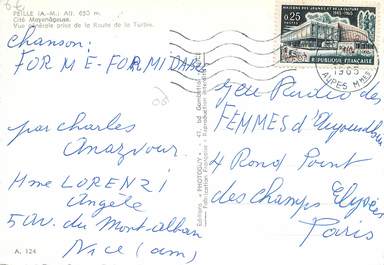 PEILLE (A.-M.) Alt. 630 m.
Cité Moyenâgeuse.
Vue Générale prise de la Route de la Turbie.
Chanson:
FOR ME-FORMIDABLE
par Charles
Anazvour
Mme LORENZI
Angèle
5 Av. du Mont-alban
Nice (am)
A. 124
MAISONS DES JEUNES ET DE LA CULTURE
0,25
POSTES
RÉPUBLIQUE FRANÇAISE
1965
ALPES MMES
Jeu Radio des
FEMMES d'Aujourd'hui
4 Rond Point
des champs Elysées
Paris